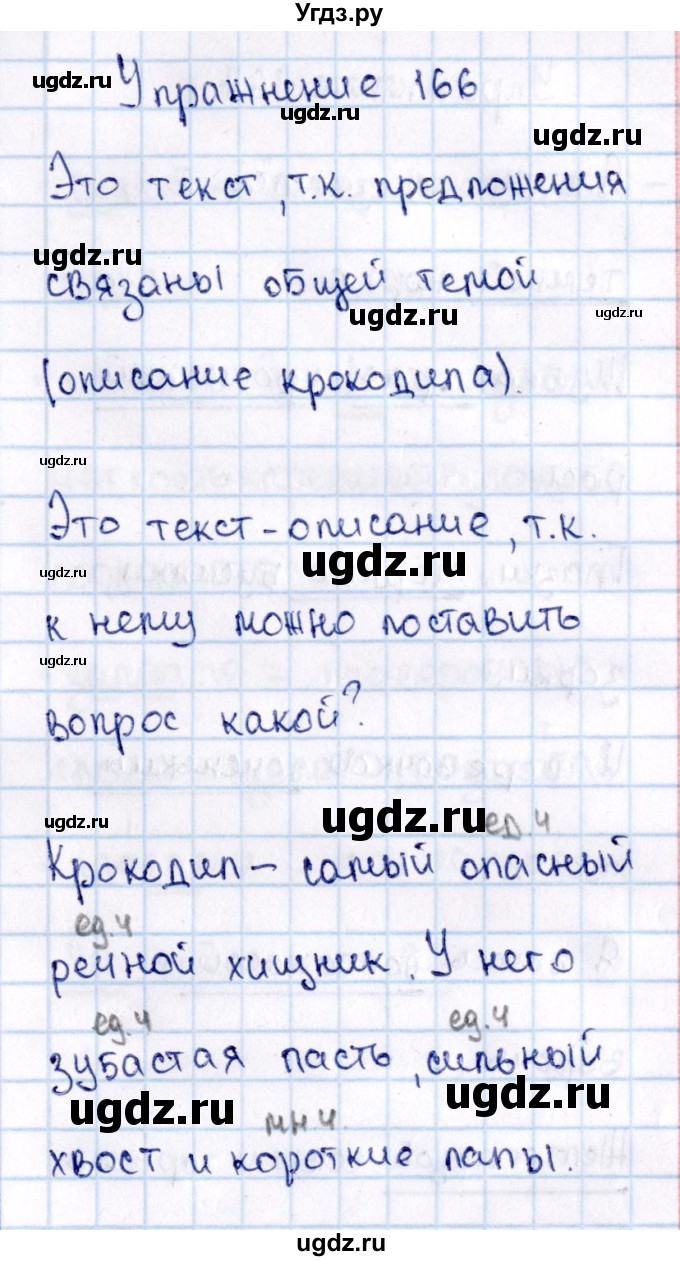 Угдз.ру
ugdz.ru
Упражнение 166
ugdz.ru
ugdz.ru
Это текст, т.к. предложения
ugdz.ru
связаны общей темой
ugdz.ru
ugdz.ru
(описание крокодила).
ugdz.ru
Это текст-описание, т.к.
ugdz.ru
ugdz.ru
к нему можно поставить
ugdz.ru
вопрос какой?
ugdz.ru
ugdz.ru
ед.ч
Крокодил - самый опасный
ед.ч
речной хищник. У него
ед.ч ед.ч
зубастая пасть, сильный
ugdz.ru
ugdz.ru
мн.ч.
хвост и короткие лапы.
ugdz.ru